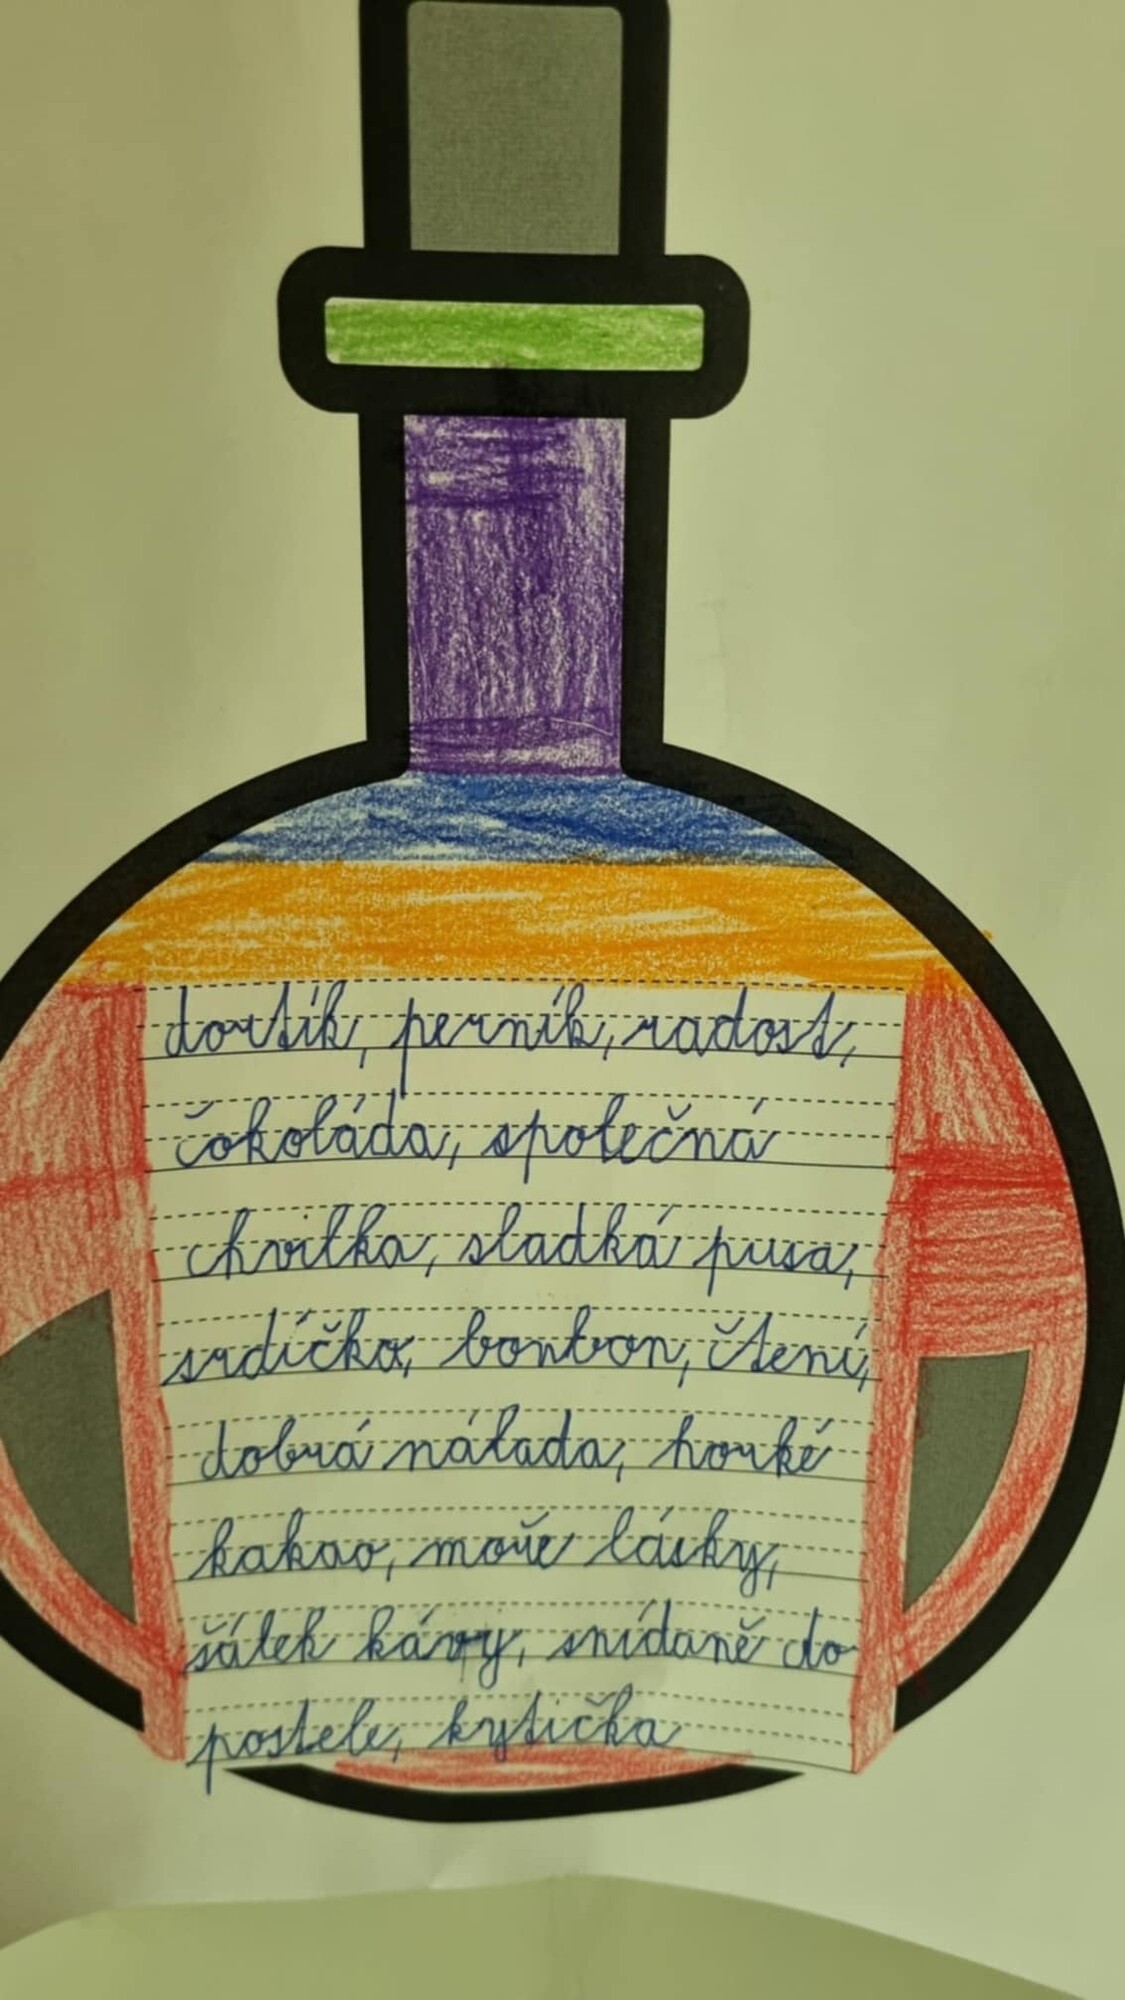 dortík, perník, radost,
čokoláda, společná
chvilka, sladká pusa,
srdíčko, bonbon, čtení,
dobrá nálada, horké
kakao, moře lásky,
šálek kávy, snídaně do
postele, kytička